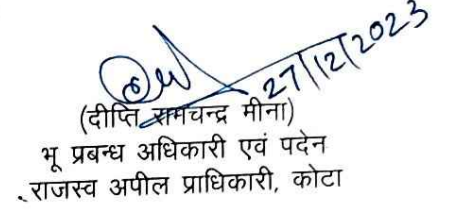 27/12/2023
(दीप्ति रामचन्द्र मीना)
भू प्रबन्ध अधिकारी एवं पदेन
राजस्व अपील प्राधिकारी, कोटा